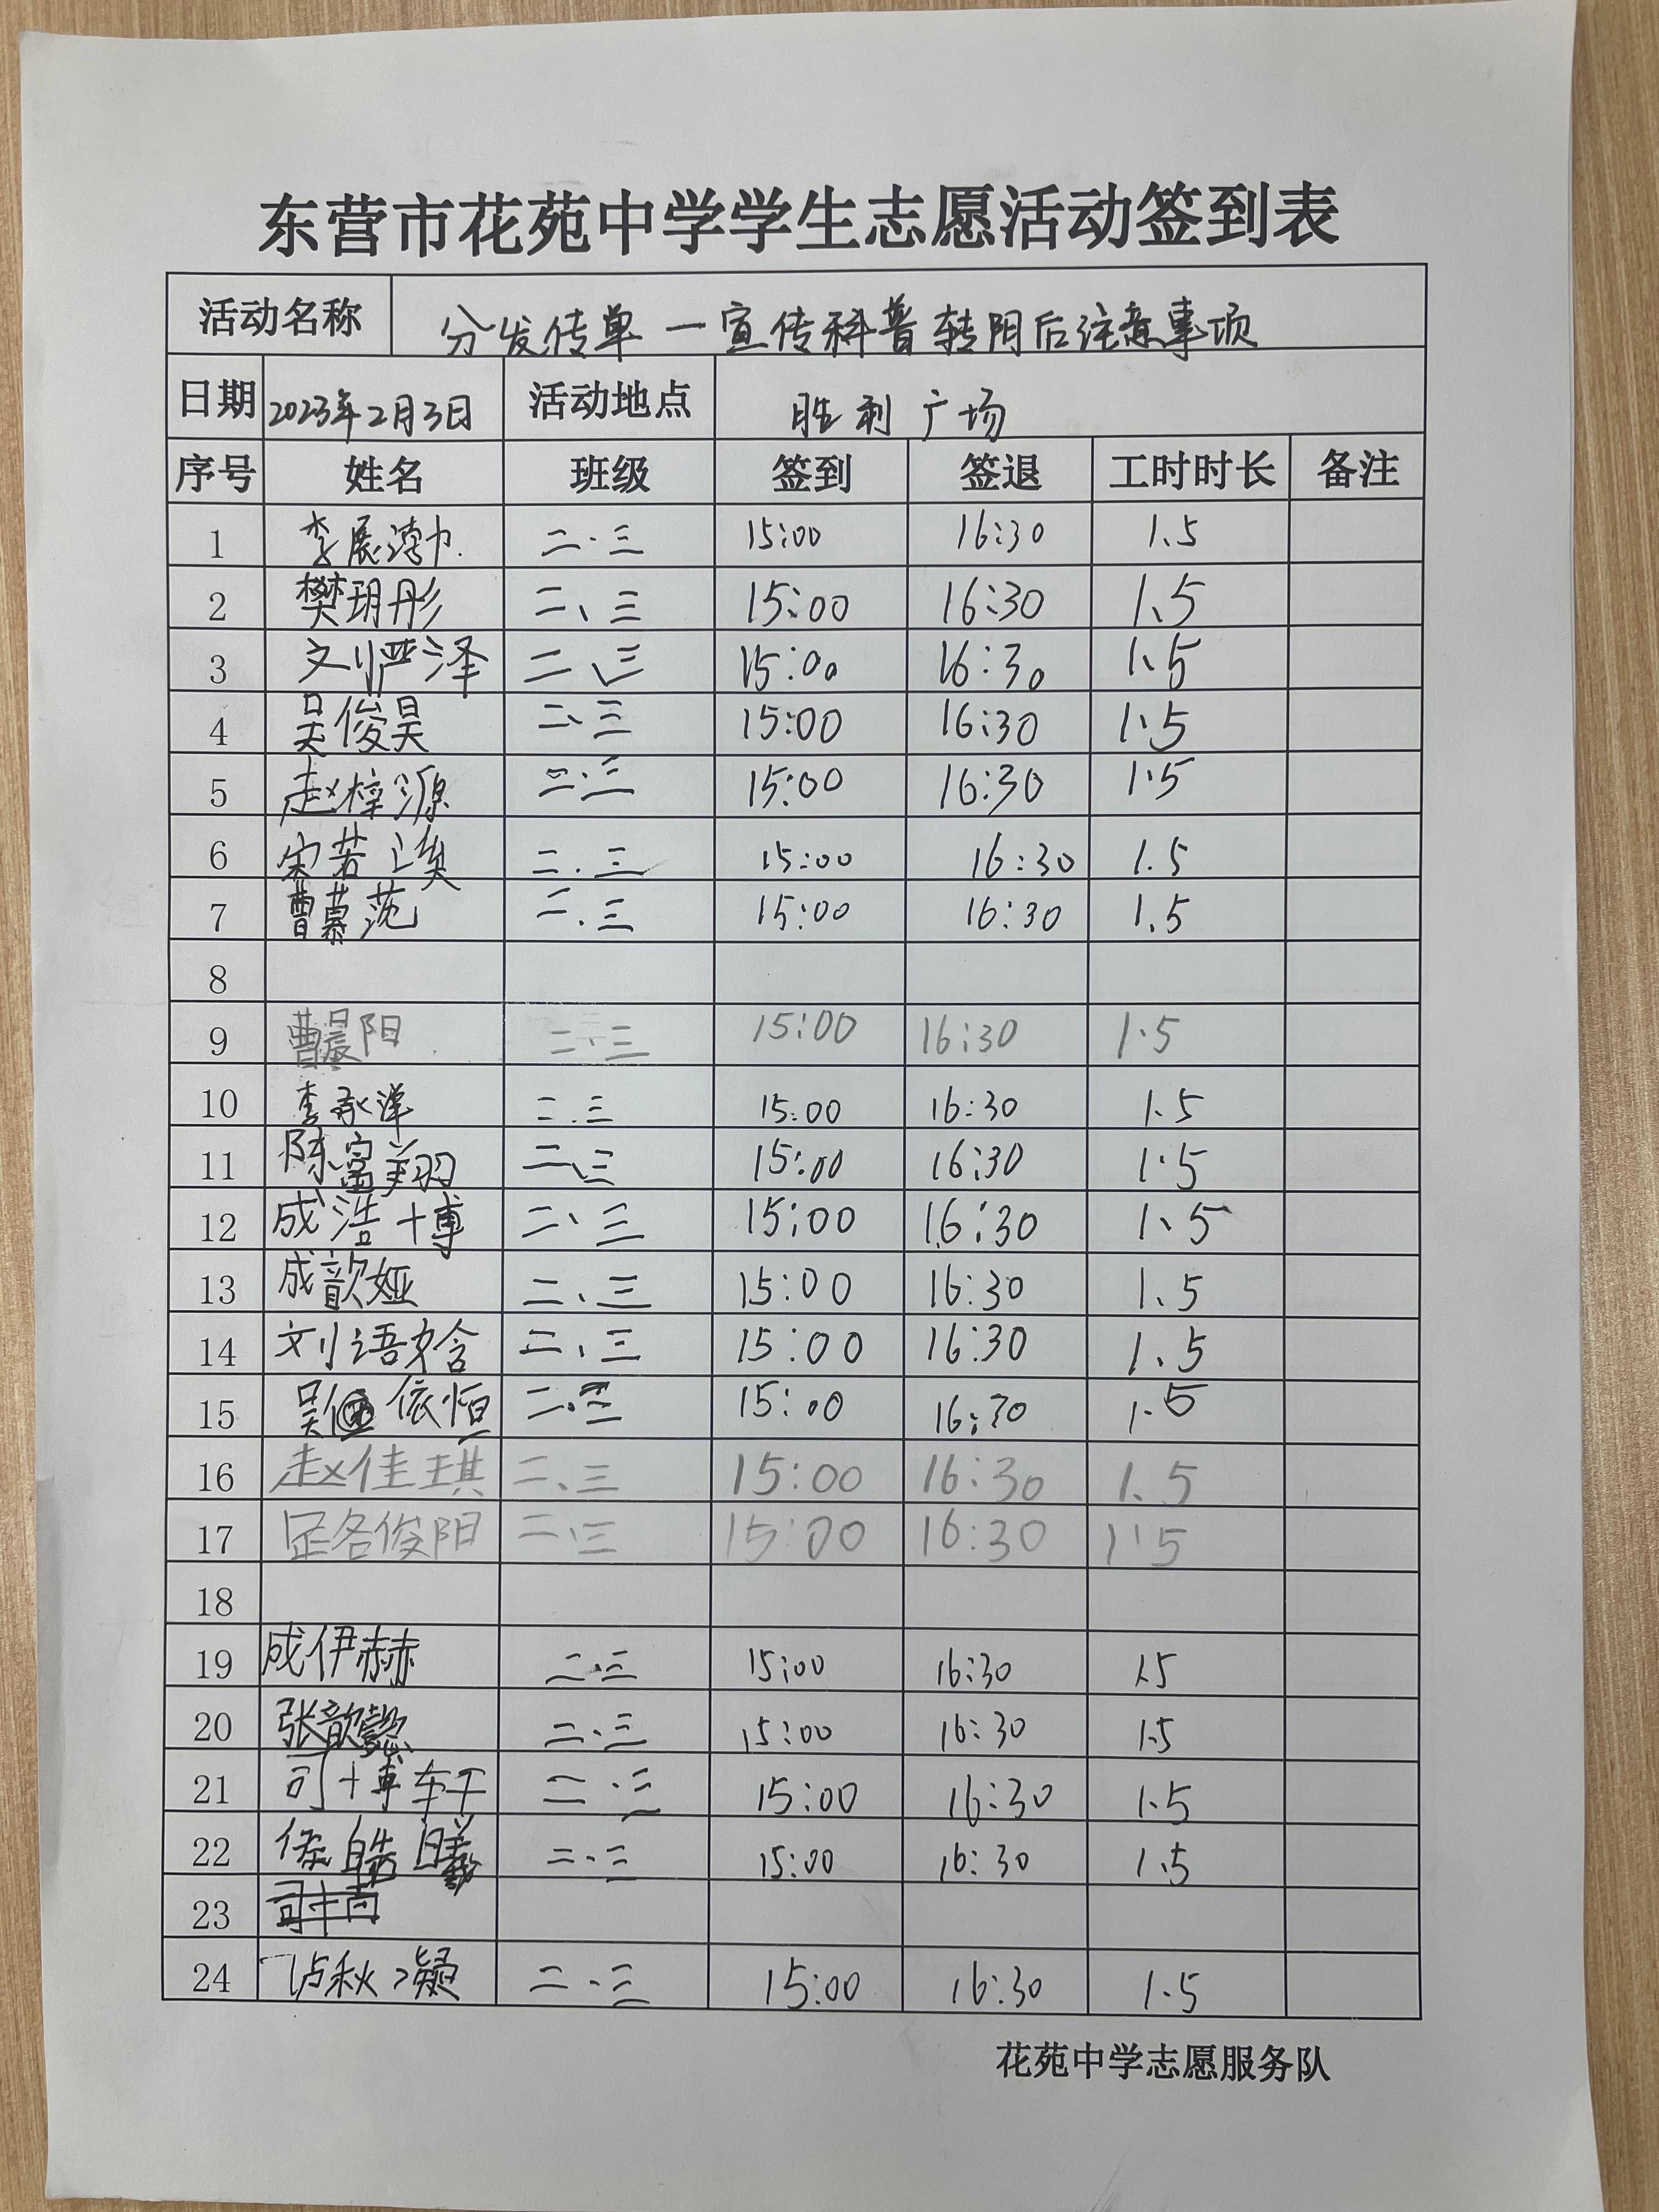 东营市花苑中学学生志愿活动签到表
活动名称 分发传单—宣传科普转阴后注意事项
日期 2023年2月3日 活动地点 胜利广场
序号 姓名 班级 签到 签退 工时时长 备注
1 李展 二.三 15:00 16:30 1.5
2 樊玥彤 二、三 15:00 16:30 1.5
3 刘严泽 二、三 15:00 16:30 1.5
4 吴俊昊 二、三 15:00 16:30 1.5
5 赵梓源 二.三 15:00 16:30 1.5
6 宋若 二.三 15:00 16:30 1.5
7 曹慕 二.三 15:00 16:30 1.5
8
9 曹晨阳 二、三 15:00 16:30 1.5
10 李承洋 二.三 15:00 16:30 1.5
11 陈富翔 二、三 15:00 16:30 1.5
12 成浩博 二、三 15:00 16:30 1.5
13 成歆娅 二、三 15:00 16:30 1.5
14 刘语晗 二、三 15:00 16:30 1.5
15 吴依恒 二.三 15:00 16:30 1.5
16 赵佳琪 二、三 15:00 16:30 1.5
17 俊阳 二、三 15:00 16:30 1.5
18
19 成伊赫 二.三 15:00 16:30 1.5
20 张歆懿 二、三 15:00 16:30 1.5
21 司博轩 二.三 15:00 16:30 1.5
22 侯皓曦 二.三 15:00 16:30 1.5
23
24 秋凝 二.三 15:00 16:30 1.5
花苑中学志愿服务队